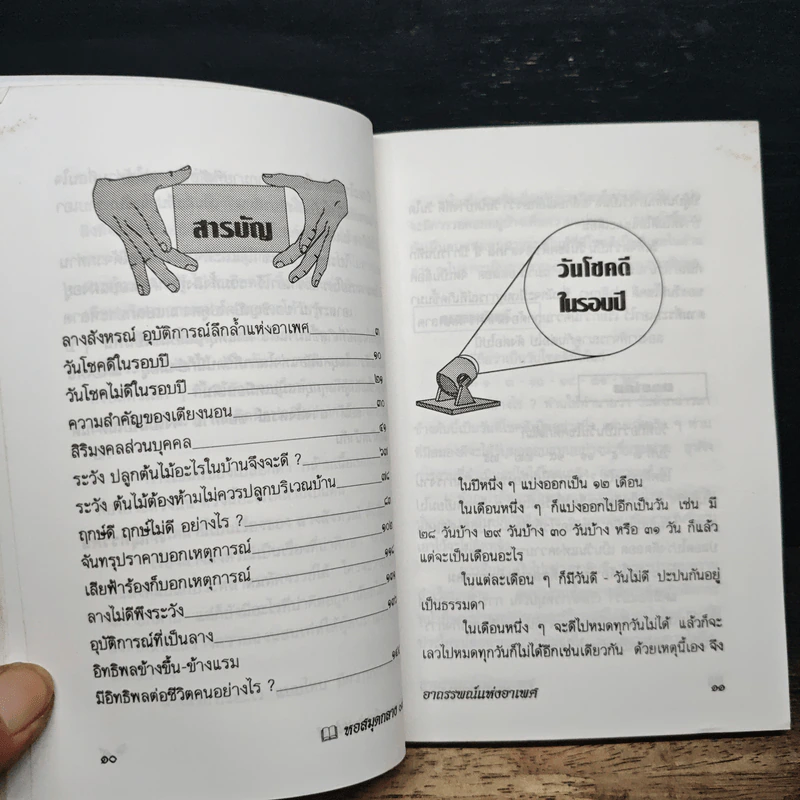 สารบัญ
ลางสังหรณ์ อุบัติการณ์ลึกล้ำแห่งอาเพศ ๓
วันโชคดีในรอบปี ๑๐
วันโชคไม่ดีในรอบปี ๒๑
ความสำคัญของเตียงนอน ๓๐
สิริมงคลส่วนบุคคล ๔๑
ระวัง ปลูกต้นไม้อะไรในบ้านจึงจะดี ? ๖๗
ระวัง ต้นไม้ต้องห้ามไม่ควรปลูกบริเวณบ้าน ๗๘
ฤกษ์ดี ฤกษ์ไม่ดี อย่างไร ?
จันทรุปราคาบอกเหตุการณ์ ๑๐๒
เสียฟ้าร้องก็บอกเหตุการณ์
ลางไม่ดีพึงระวัง
อุบัติการณ์ที่เป็นลาง
อิทธิพลข้างขึ้น-ข้างแรม
มีอิทธิพลต่อชีวิตคนอย่างไร ?
หอสมุดกลาง
๑๐
วันโชคดี
ในรอบปี
ในปีหนึ่ง ๆ แบ่งออกเป็น ๑๒ เดือน
ในเดือนหนึ่ง ๆ ก็แบ่งออกไปอีกเป็นวัน เช่น มี
๒๘ วันบ้าง ๒๙ วันบ้าง ๓๐ วันบ้าง หรือ ๓๑ วัน ก็แล้ว
แต่จะเป็นเดือนอะไร
ในแต่ละเดือน ๆ ก็มีวันดี - วันไม่ดี ปะปนกันอยู่
เป็นธรรมดา
ในเดือนหนึ่ง ๆ จะดีไปหมดทุกวันไม่ได้ แล้วก็จะ
เลวไปหมดทุกวันก็ไม่ได้อีกเช่นเดียวกัน ด้วยเหตุนี้เอง จึง
อาถรรพณ์แห่งอาเพศ
๑๑